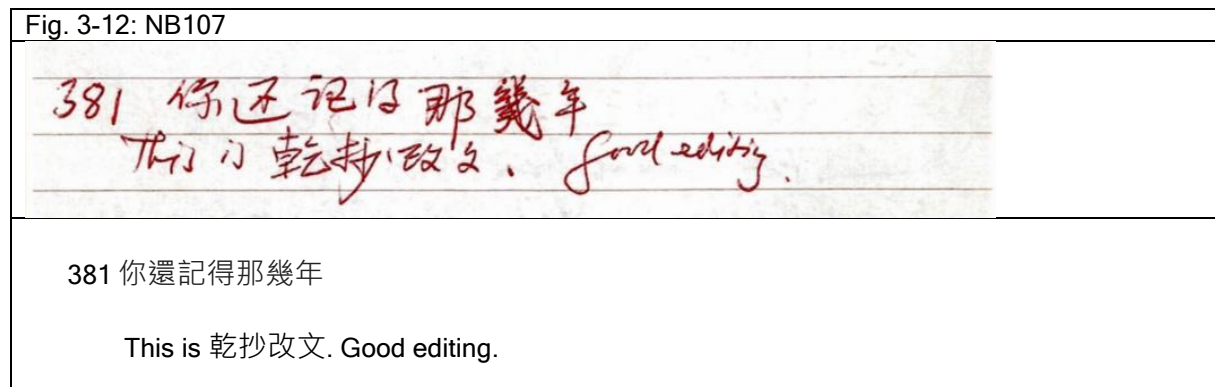 Fig. 3-12: NB107
381 你还记得那幾年
This is 乾抄改文. Good editing.
381 你還記得那幾年
This is 乾抄改文. Good editing.